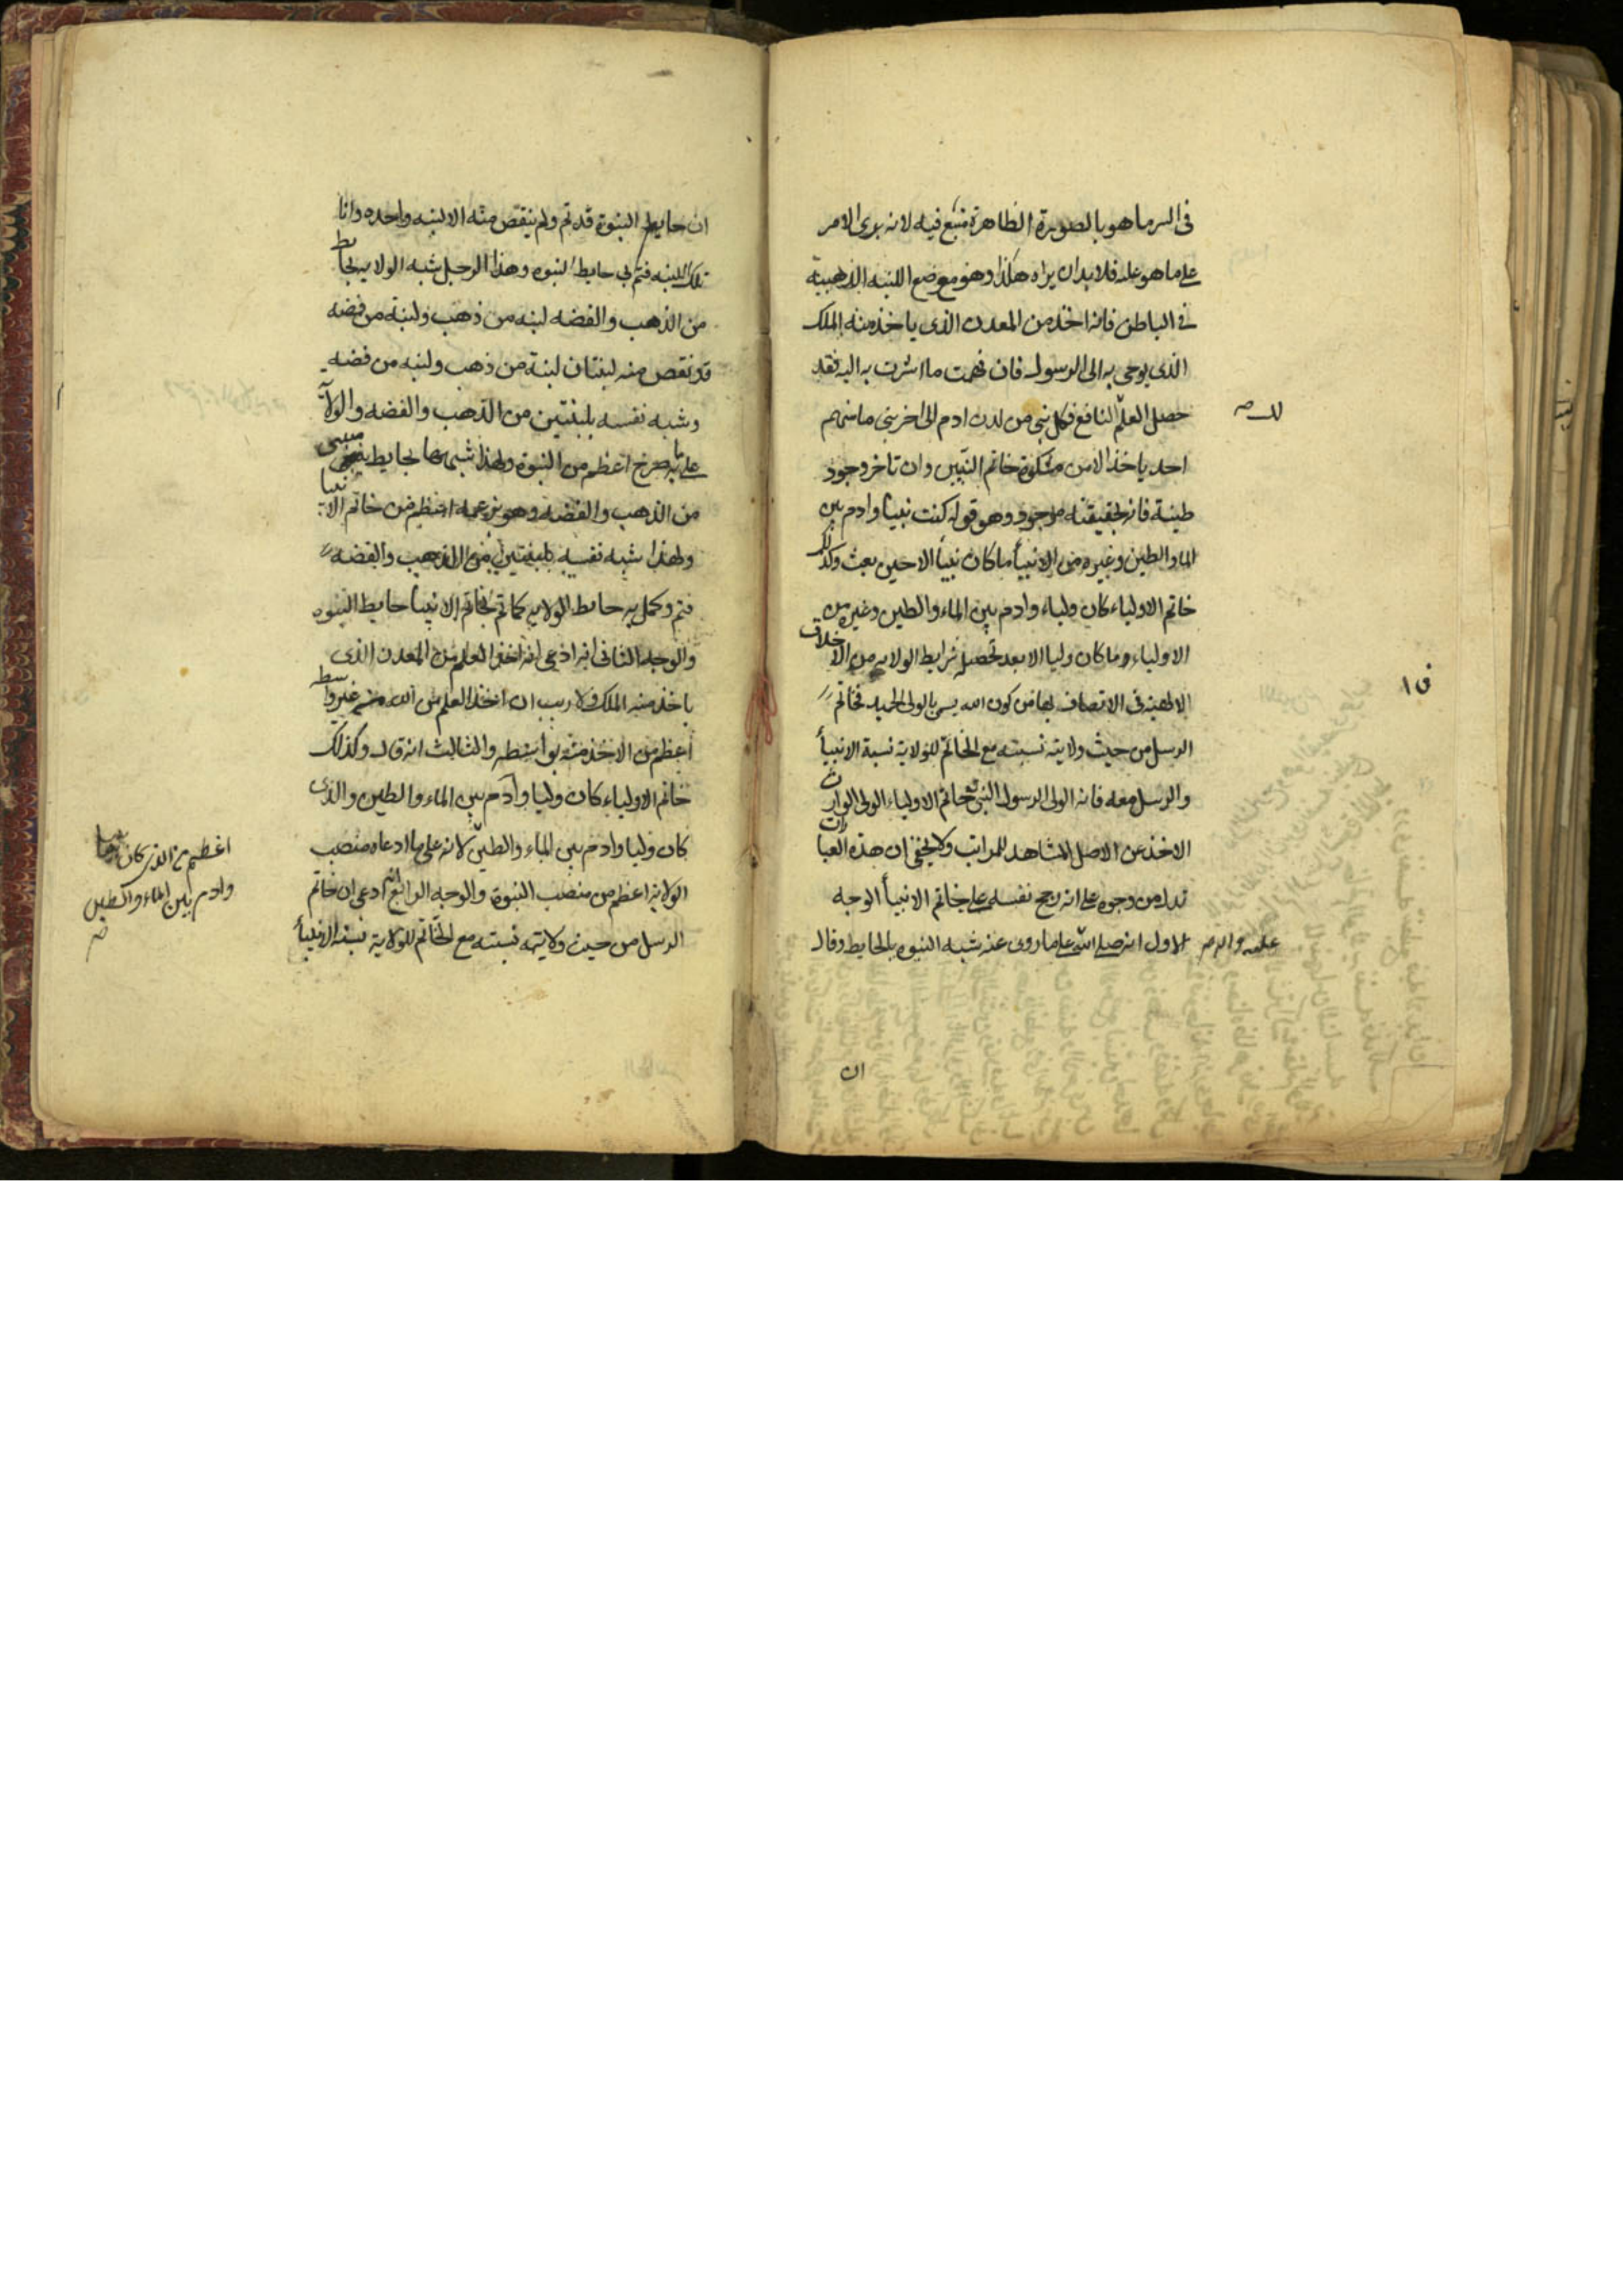 فى السر ما هو بالصورة الظاهرة متبع فيه لانه يرى الامر
على ما هو عليه فلا بد ان يراه هكذا وهو موضع اللبنه الذهبية
فى الباطن فانه اخذ من المعدن الذى ياخذ منه الملك
الذى يوحى به الى الرسول فان فهمت ما اشرت به اليه فقد
حصل العلم النافع فكل نبى من لدن ادم الى اخر نبى ما منهم
لك
احد ياخذ الا من مشكوة خاتم النبيين وان تاخر وجود
طينة فانه بحقيقته موجود وهو قوله كنت نبيا وادم بين
الما والطين وغيره من الانبيأ ما كان نبيا الا حين بعث وكذلك
خاتم الاولياء كان ولياء وادم بين الماء والطين وغيره من
الاولياء وما كان وليا الا بعد تحصيله شرايط الولايه من الاخلاق
الالهية فى الاتصاف بها من كون الله يسمى بالولى الحميد فخاتم
الرسل من حيث ولايته نسبته مع الخاتم للولاية نسبة الانبيأ
والرسل معه فانه الولى الرسول النبى وخاتم الاولياء الولى الوارث
الاخذ عن الاصل المشاهد للمراتب ولا يخفى ان هذه العبارات
تدل من وجوه على انه رجح نفسه على خاتم الانبيأ الوجه
الاول انه صلى الله على ما روى عنه شبه النبوه بالحايط وقال
عليه واله
ان
ان حايط النبوة قد تم ولم ينقص منه الا لبنه واحده وانا
تلك اللبنه فتم بى حايط النبوه وهذا الرجل شبه الولايه بحايط
من الذهب والفضه لبنه من ذهب ولبنة من فضه
قد نقص منه لبنتان لبنة من ذهب ولبنه من فضه
وشبه نفسه بلبنتين من الذهب والفضه والولا
على ما صرح اعظم من النبوة ولهذا شبهها بحايط
من الذهب والفضه وهو بزعمه اعظم من خاتم الانبيا
ولهذا شبه نفسه بلبنتين من الذهب والفضه
فتم وكمل به حايط الولايه كما تم بخاتم الانبيأ حايط النبوه
والوجه الثانى انه ادعى انه اخذ العلم من المعدن الذى
ياخذ منه الملك ولا ريب ان اخذ العلم من الله من غير واسطه
اعظم من الاخذ منه بواسطه والثالث انه قال وكذلك
خاتم الاولياء كان وليا وآدم بين الماء والطين والذى
كان وليا وادم بين الماء والطين لانه على ما ادعاه منصب
اعظم من الذى كان نبيا
وادم بين الماء والطين
الولاية اعظم من منصب النبوة والوجه الرابع انه ادعى ان خاتم
الرسل من حيث ولايته نسبته مع الخاتم للولاية نسبة الانبيأ